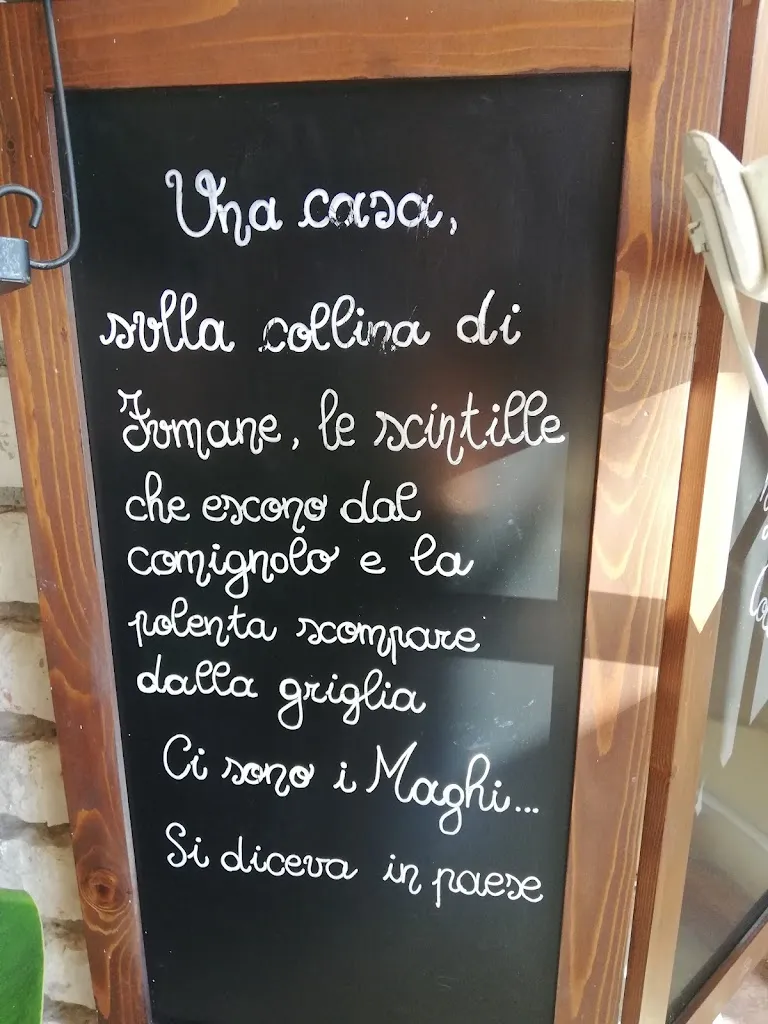 Una casa,
sulla collina di
Fumane, le scintille
che escono dal
comignolo e la
polenta scompare
dalla griglia
Ci sono i Maghi...
Si diceva in paese